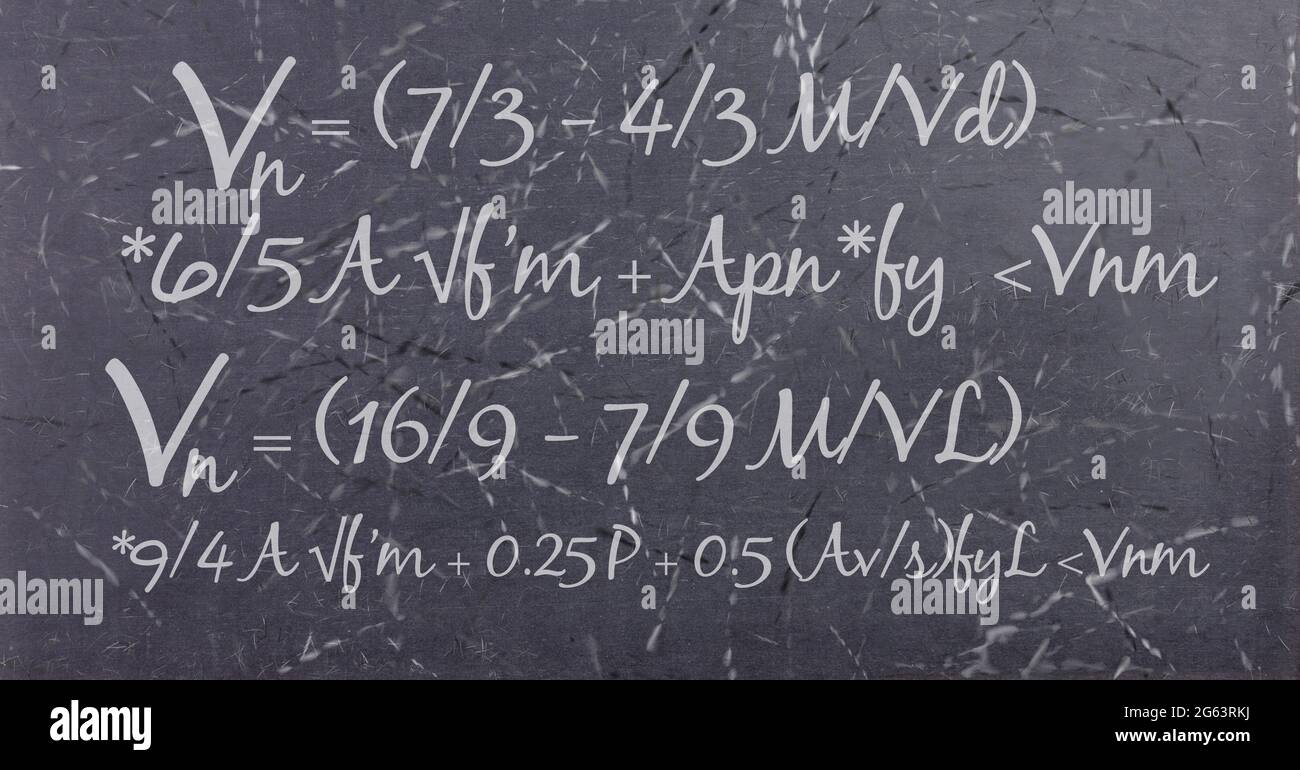 Vn = (7/3 - 4/3 M/Vd)
*6/5 A √f'm + Apn*fy <Vnm
Vn = (16/9 - 7/9 M/VL)
*9/4 A √f'm + 0.25P + 0.5 (Av/s)fyL <Vnm
alamy
alamy
alamy
alamy
alamy
alamy
Image ID: 2G63RKJ
www.alamy.com